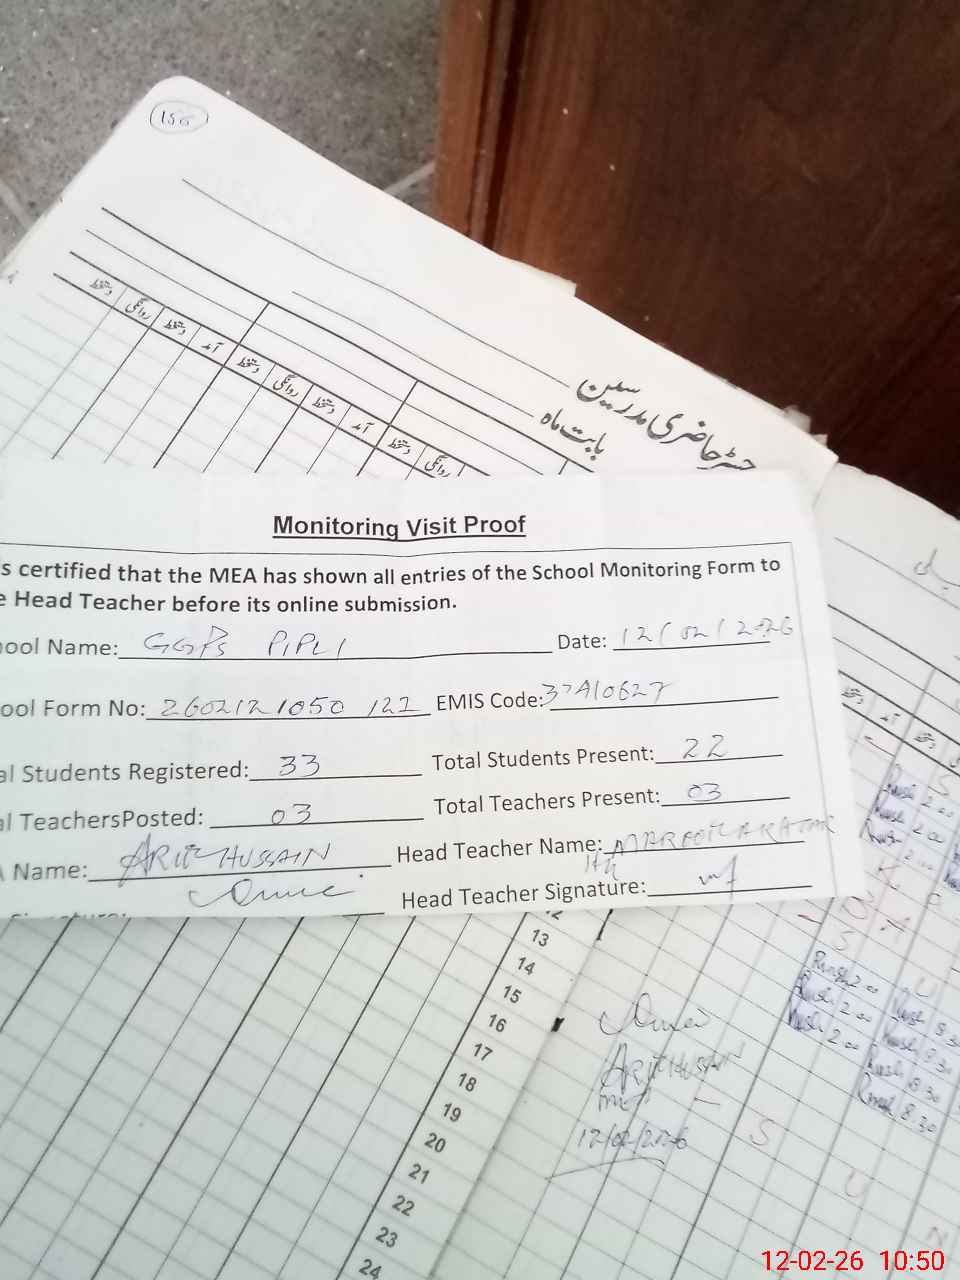 156
رجسٹر حاضری مدرسین
بابت ماہ
دستخط روانگی دستخط آمد دستخط روانگی دستخط آمد دستخط روانگی
Monitoring Visit Proof
s certified that the MEA has shown all entries of the School Monitoring Form to
e Head Teacher before its online submission.
ool Name: GGPS PIPLI Date: 12/02/2026
ool Form No: 2602121050 122 EMIS Code: 37A10627
al Students Registered: 33 Total Students Present: 22
al TeachersPosted: 03 Total Teachers Present: 03
Name: ARIF HUSSAIN Head Teacher Name:
Head Teacher Signature:
دستخط آمد دستخط
12
13
14
15
16
17
18
19
20
21
22
23
24
2.00
2.00
2.00
2.00
2.00
2.00
8.30
8.30
8.30
8.30
ARIF HUSSAIN
12/02/2026
12-02-26 10:50